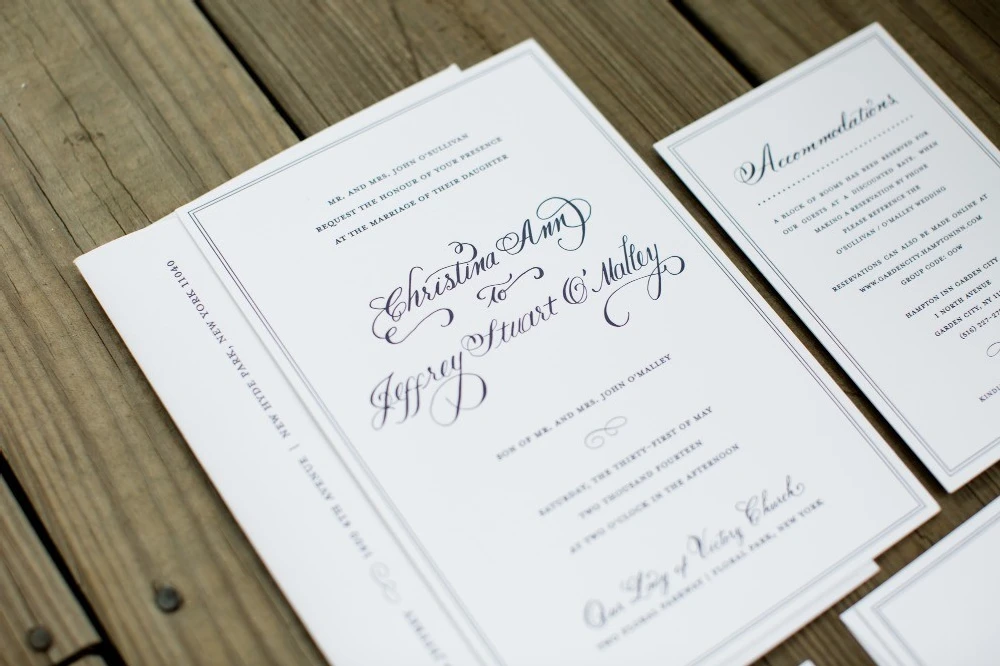 MR. AND MRS. JOHN O'SULLIVAN
REQUEST THE HONOUR OF YOUR PRESENCE
AT THE MARRIAGE OF THEIR DAUGHTER
Christina Ann
To
Jeffrey Stuart O'Malley
SON OF MR. AND MRS. JOHN O'MALLEY
SATURDAY, THE THIRTY-FIRST OF MAY
TWO THOUSAND FOURTEEN
AT TWO O'CLOCK IN THE AFTERNOON
Our Lady of Victory Church
TWO FLORAL PARKWAY | FLORAL PARK, NEW YORK
JEFFREY
4TH AVENUE | NEW HYDE PARK, NEW YORK 11040
Accommodations
A BLOCK OF ROOMS HAS BEEN RESERVED FOR
OUR GUESTS AT A DISCOUNTED RATE. WHEN
MAKING A RESERVATION BY PHONE
PLEASE REFERENCE THE
O'SULLIVAN / O'MALLEY WEDDING
RESERVATIONS CAN ALSO BE MADE ONLINE AT
WWW.GARDENCITY.HAMPTONINN.COM
GROUP CODE: OOW
HAMPTON INN GARDEN CITY
1 NORTH AVENUE
GARDEN CITY, NY
(516) 227-27